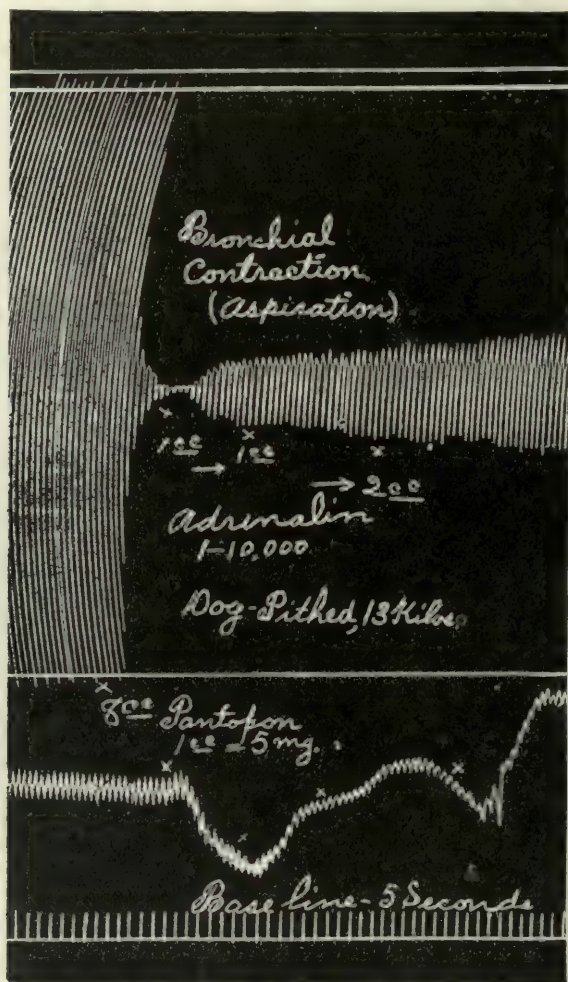 Bronchial
Contraction
(Aspiration)
1cc → 1cc
→ 2cc
Adrenalin
1-10,000
Dog-Pithed, 13 Kilos
8cc Pantopon
1cc = 5 mg.
Base line - 5 Seconds